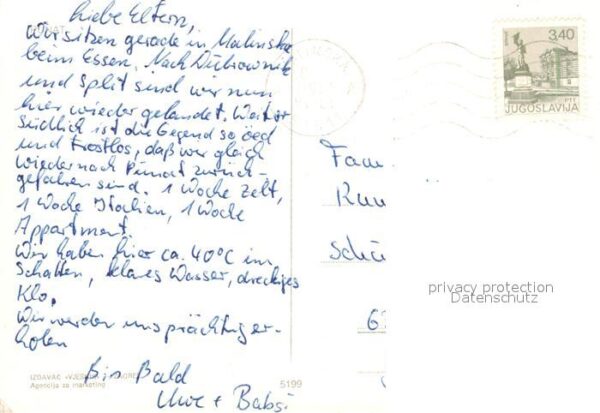 Liebe Eltern,
Wir sitzen gerade in Malinska
beim Essen. Nach Dubrownik
und Split sind wir nun
hier wieder gelandet. Weiter
südlich ist die Gegend so öed
und trostlos, daß wir gleich
wieder nach Punat zurück-
gefahren sind. 1 Woche Zelt,
1 Woche Italien, 1 Woche
Appartment.
Wir haben hier ca. 40°C im
Schatten, klares Wasser, dreckiges
Klo.
Wir werden uns prächtig er-
holen
Bis Bald
Uwe + Babsi
IZDAVAČ »VJESNIK«
Agencija za marketing
5199
3,40
JUGOSLAVIJA
Fam
privacy protection
Datenschutz